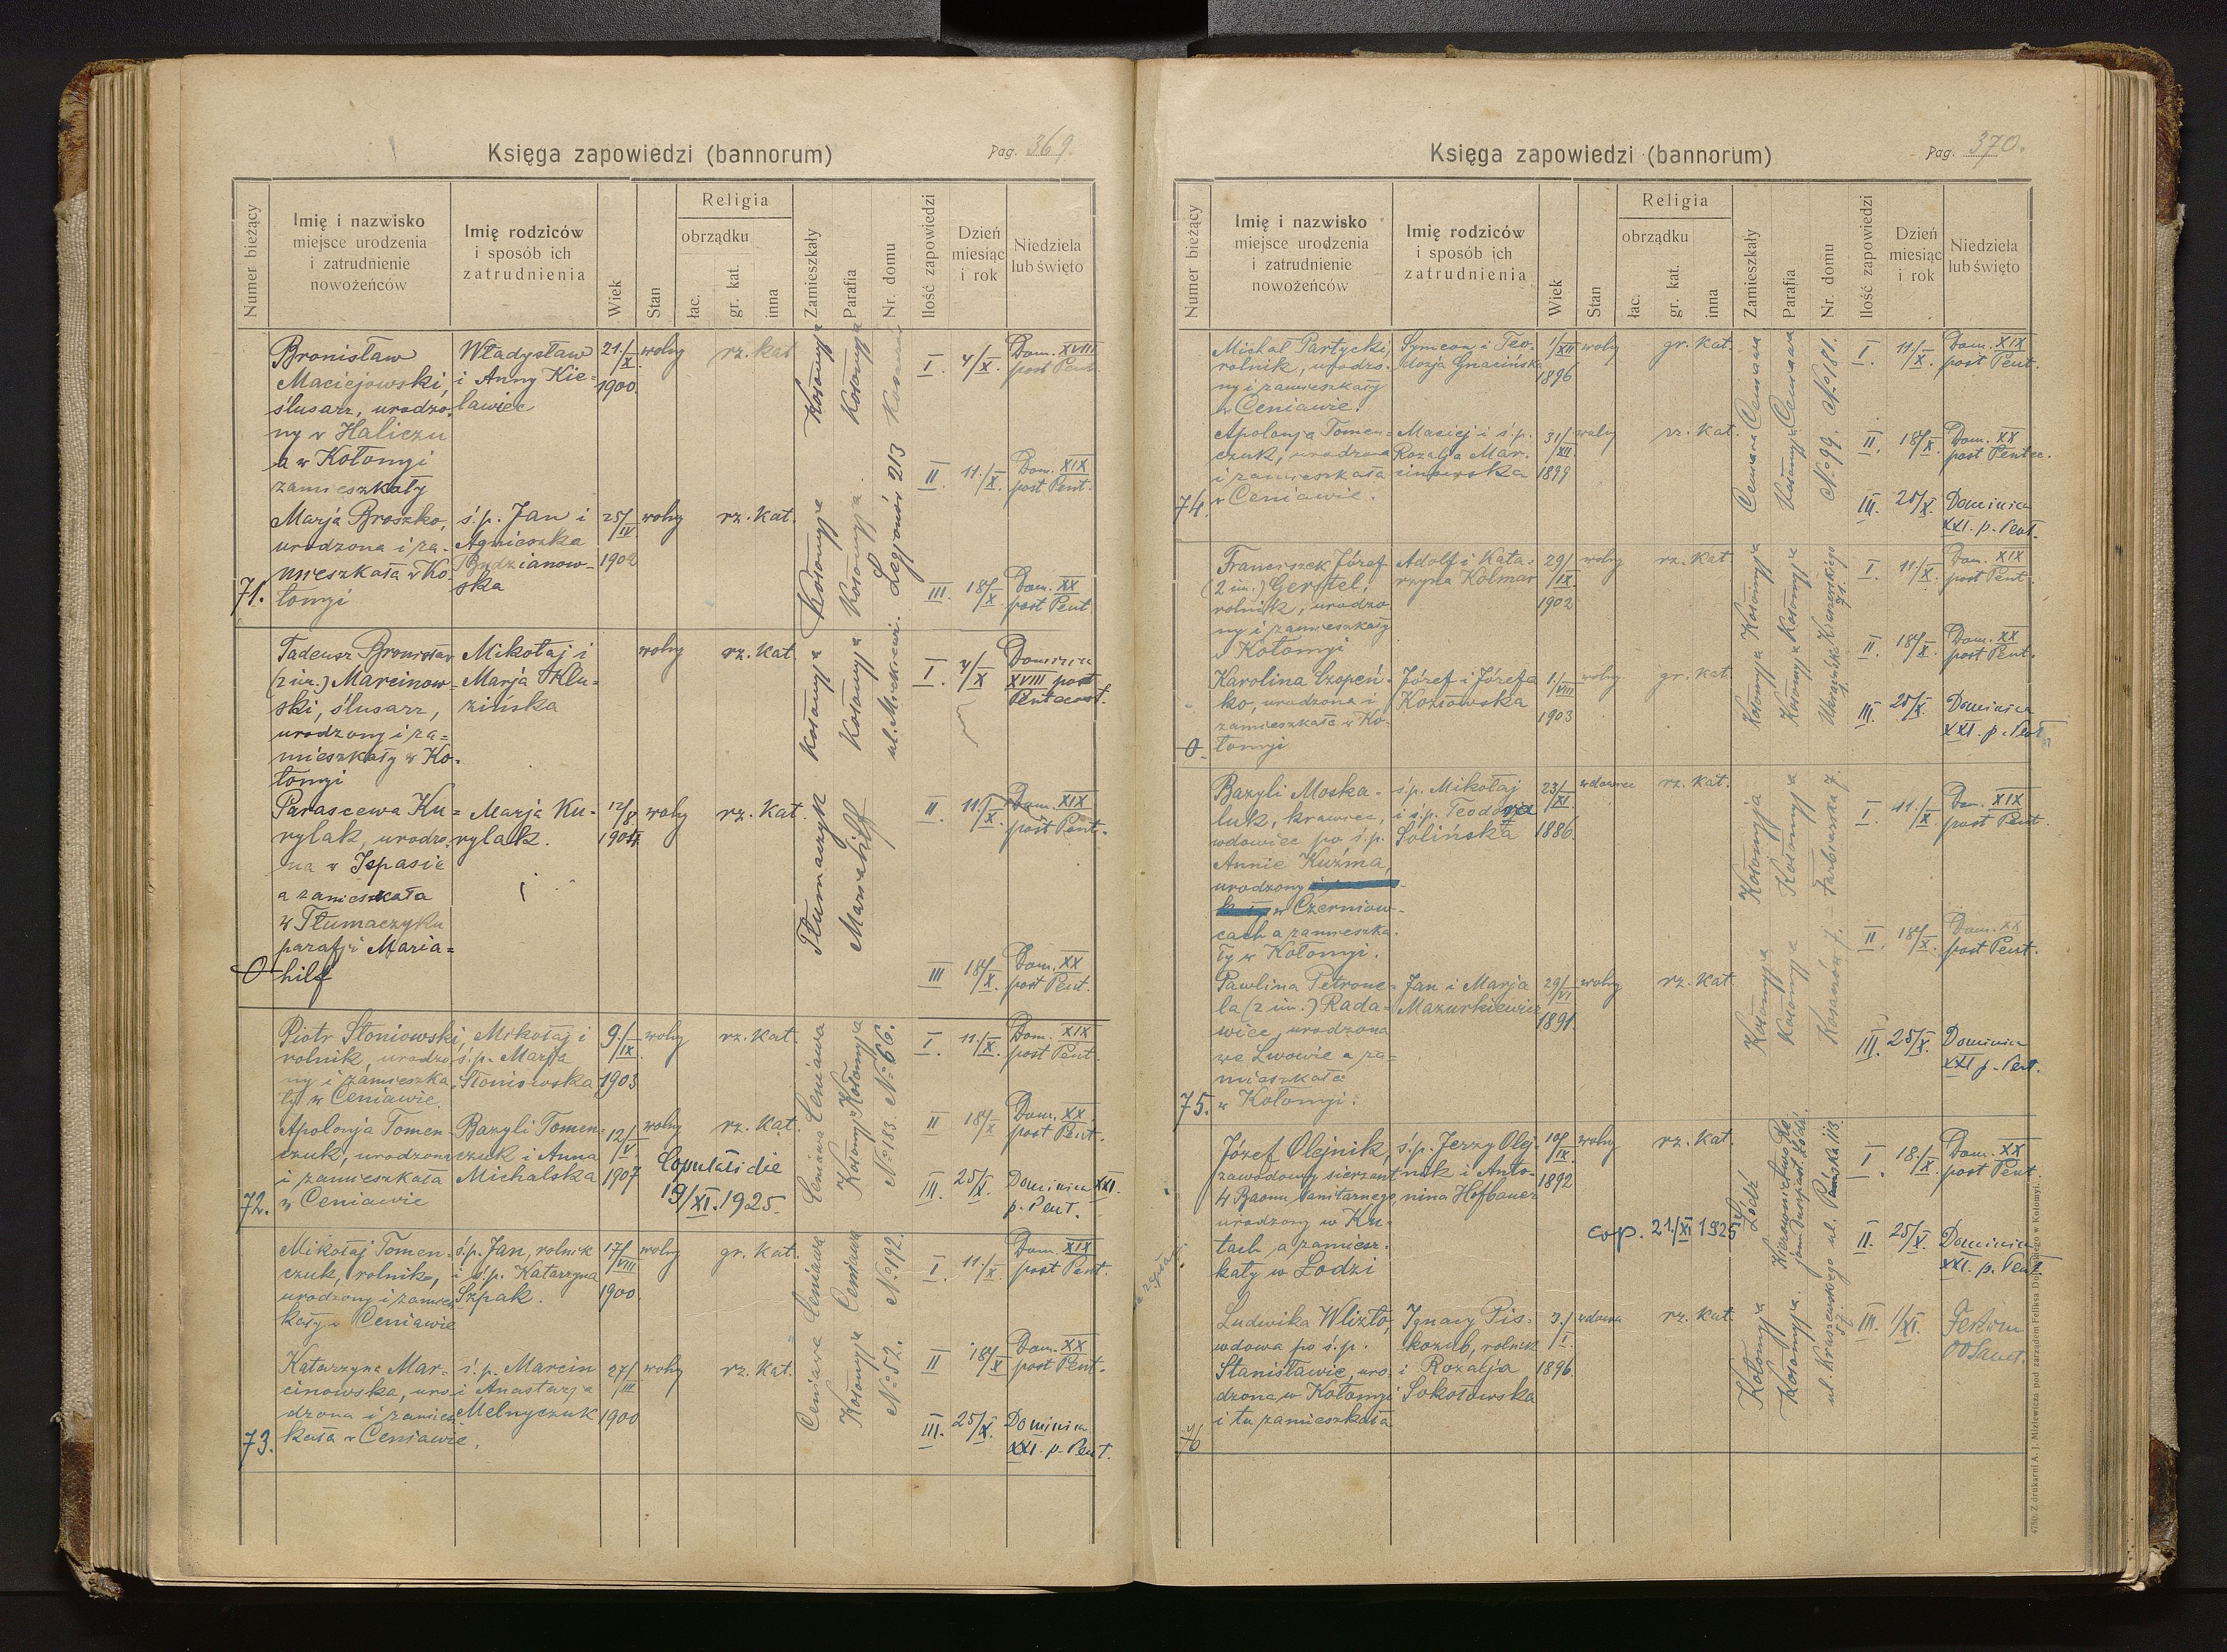 Księga zapowiedzi (bannorum)
Pag. 369.
Numer bieżący
Imię i nazwisko
miejsce urodzenia
i zatrudnienie
nowożeńców
Imię rodziców
i sposób ich
zatrudnienia
Wiek
Stan
Religia
obrządku
łac.
gr. kat.
inna
Zamieszkały
Parafia
Nr. domu
Ilość zapowiedzi
Dzień
miesiąc
i rok
Niedziela
lub święto
71.
Bronisław
Maciejowski,
ślusarz, urodzo-
ny w Haliczu
a w Kołomyi
zamieszkały
Władysław
i Anny Kie-
lawiec
21./X.
1900.
wolny
rz. kat
Kołomyja
Kołomyja
I. 4/X. Dom. XVIII
post Pent.
II. 11./X. Dom. XIX
post Pent.
Marja Broszko,
urodzona i za-
mieszkała w Ko-
łomyi
ś.p. Jan i
Agnieszka
Budzianow-
ska
25/IV
1902
wolny
rz. kat.
Kołomyja
Kołomyja
Legionów 213
III. 18/X. Dom. XX
post Pent
0
Tadeusz Bronisław
(2 im.) Marcinow-
ski, ślusarz,
urodzony i za=
mieszkały w Ko-
łomyi
Mikołaj i
Marja Klu=
zińska
wolny
rz. kat
Kołomyja
Kołomyja
ul. Mickiewi.
I. 4/X Dominica
XVIII post
Pentecost.
Parascewa Ku=
rylak, urodzo-
na w Ispasie
a zamieszkała
w Tłumaczyku
parafji Maria=
hilf
Marja Ku-
rylak.
12/X
wolny
rz. kat.
Tłumaczyk
Mariahilf
II 11./X Dom. XIX
post Pent.
III 18/X. Dom. XX
post Pent.
72.
Piotr Słoniowski,
rolnik, urodzo-
ny i zamieszka-
ły w Ceniawie.
Mikołaj i
ś.p. Marja
Słoniowska
9./IX.
1903
wolny
rz. kat.
Ceniawa
Kołomyja
No 66.
I. 11./X. Dom. XIX
post Pent.
Apolonja Tomen-
czuk, urodzona
i zamieszkała
w Ceniawie
Bazyli Tomen=
czuk i Anna
Michalska
12/V.
1907
wolny
rz. kat.
Copulati die
19/XI. 1925.
Ceniawa
Kołomyja
No 183.
II 18/X Dom. XX.
post Pent.
III. 25/X. Dominica XXI.
p. Pent.
73.
Mikołaj Tomen=
czuk, rolnik,
urodzony i zamiesz
kały w Ceniawie
ś.p. Jan, rolnik
i ś.p. Katarzyna
Szpak.
17/VIII
1900.
wolny
gr. kat.
Ceniawa
Ceniawa
No 192.
I. 11./X. Dom. XIX
post Pent.
Katarzyna Mar-
cinowska, uro-
dzona i zamiesz
kała w Ceniawie.
ś.p. Marcin
i Anastazja
Melnyczuk
27/III
1900
wolny
rz. kat.
Ceniawa
Kołomyja
No 52.
II 18/X Dom. XX
post Pent.
III. 25/X. Dominica
XXI. p. Pent.
Księga zapowiedzi (bannorum)
Pag. 370.
Numer bieżący
Imię i nazwisko
miejsce urodzenia
i zatrudnienie
nowożeńców
Imię rodziców
i sposób ich
zatrudnienia
Wiek
Stan
Religia
obrządku
łac.
gr. kat.
inna
Zamieszkały
Parafia
Nr. domu
Ilość zapowiedzi
Dzień
miesiąc
i rok
Niedziela
lub święto
74.
Michał Partycki,
rolnik, urodzo-
ny i zamieszkały
w Ceniawie.
Symeon i Teo-
dozja Gnacińsk
1/XII
1896
wolny
gr. kat.
Ceniawa
Ceniawa
No 181.
I. 11/X. Dom. XIX
post Pent.
Apolonja Tomen=
czuk, urodzona
i zamieszkała
w Ceniawie.
Maciej i ś.p.
Rozalja Mar-
cinowska
31/XII.
1899
wolny
rz. kat.
Ceniawa
Kołomyja
No 99.
II. 18/X. Dom. XX
post Pentec.
III. 25/X. Dominica
XXI. p. Pent.
0
Franciszek Józef
(2 im.) Gerstel,
rolnik, urodzo
ny i zamieszkały
w Kołomyi
Adolf i Kata-
rzyna Kolmar
29/IX.
1902
wolny
rz. kat
Kołomyja
Kołomyja
Kraszewskiego
71.
I. 11/X. Dom. XIX
post Pent.
II. 18/X. Dom. XX
post Pent.
Karolina Czopeń-
ko, urodzona i
zamieszkała w Ko-
łomyi
Józef i Józefa
Kozłowska
1./VIII
1903
wolny
gr. kat.
Kołomyja
Kołomyja
III. 25/X. Dominica
XXI. p. Pent.
75.
Bazyli Moska-
luk, krawiec,
wdowiec po ś.p.
Annie Kuźma,
urodzony
w Czerniow-
cach a zamieszka.
ły w Kołomyi.
ś.p. Mikołaj
i ś.p. Teodozja
Solińska
23/XI.
1886.
wdowiec
rz. kat.
Kołomyja
Kołomyja
Farbiarska 7.
I. 11./X Dom. XIX
post Pent.
II 18/X. Dom. XX
post Pent.
Pawlina Petrone-
la (2 im.) Rada=
wiec, urodzona
we Lwowie a za=
mieszkała
w Kołomyi.
Jan i Marja
Mazurkiewicz
29/VI
1891.
wolny
rz. kat.
Kołomyja
Kołomyja
III. 25/X. Dominica
XXI p. Pent.
76
Józef Olejnik,
zawodowy sierżant
4 Baonu Sanitarnego,
urodzony w Ku-
tach, a zamiesz.
kały w Łodzi
ś.p. Jerzy Olej-
nik i Anto-
nina Hofbauer
10/IX.
1892
wolny
rz. kat.
cop. 21/XI 1925
Łódź
Kierownictwo Re
jonu Łódź.
113.
I 18./X. Dom. XX
post Pent.
II. 25/X. Dominica
XXI. p. Pent
Ludwika Wlizło,
wdowa po ś.p.
Stanisławie, uro-
dzona w Kołomyi
i tu zamieszkała
Ignacy Pis-
kozub, rolnik
i Rozalja
Sokołowska
3./I.
1896.
wdowa
rz. kat.
Kołomyja
Kołomyja.
ul. Kraszewskiego
57.
III. 1/XI.
OO Sanct.
4750. Z drukarni A. J. Miziewicza pod zarządem Feliksa Do kiego w Kołomyi.